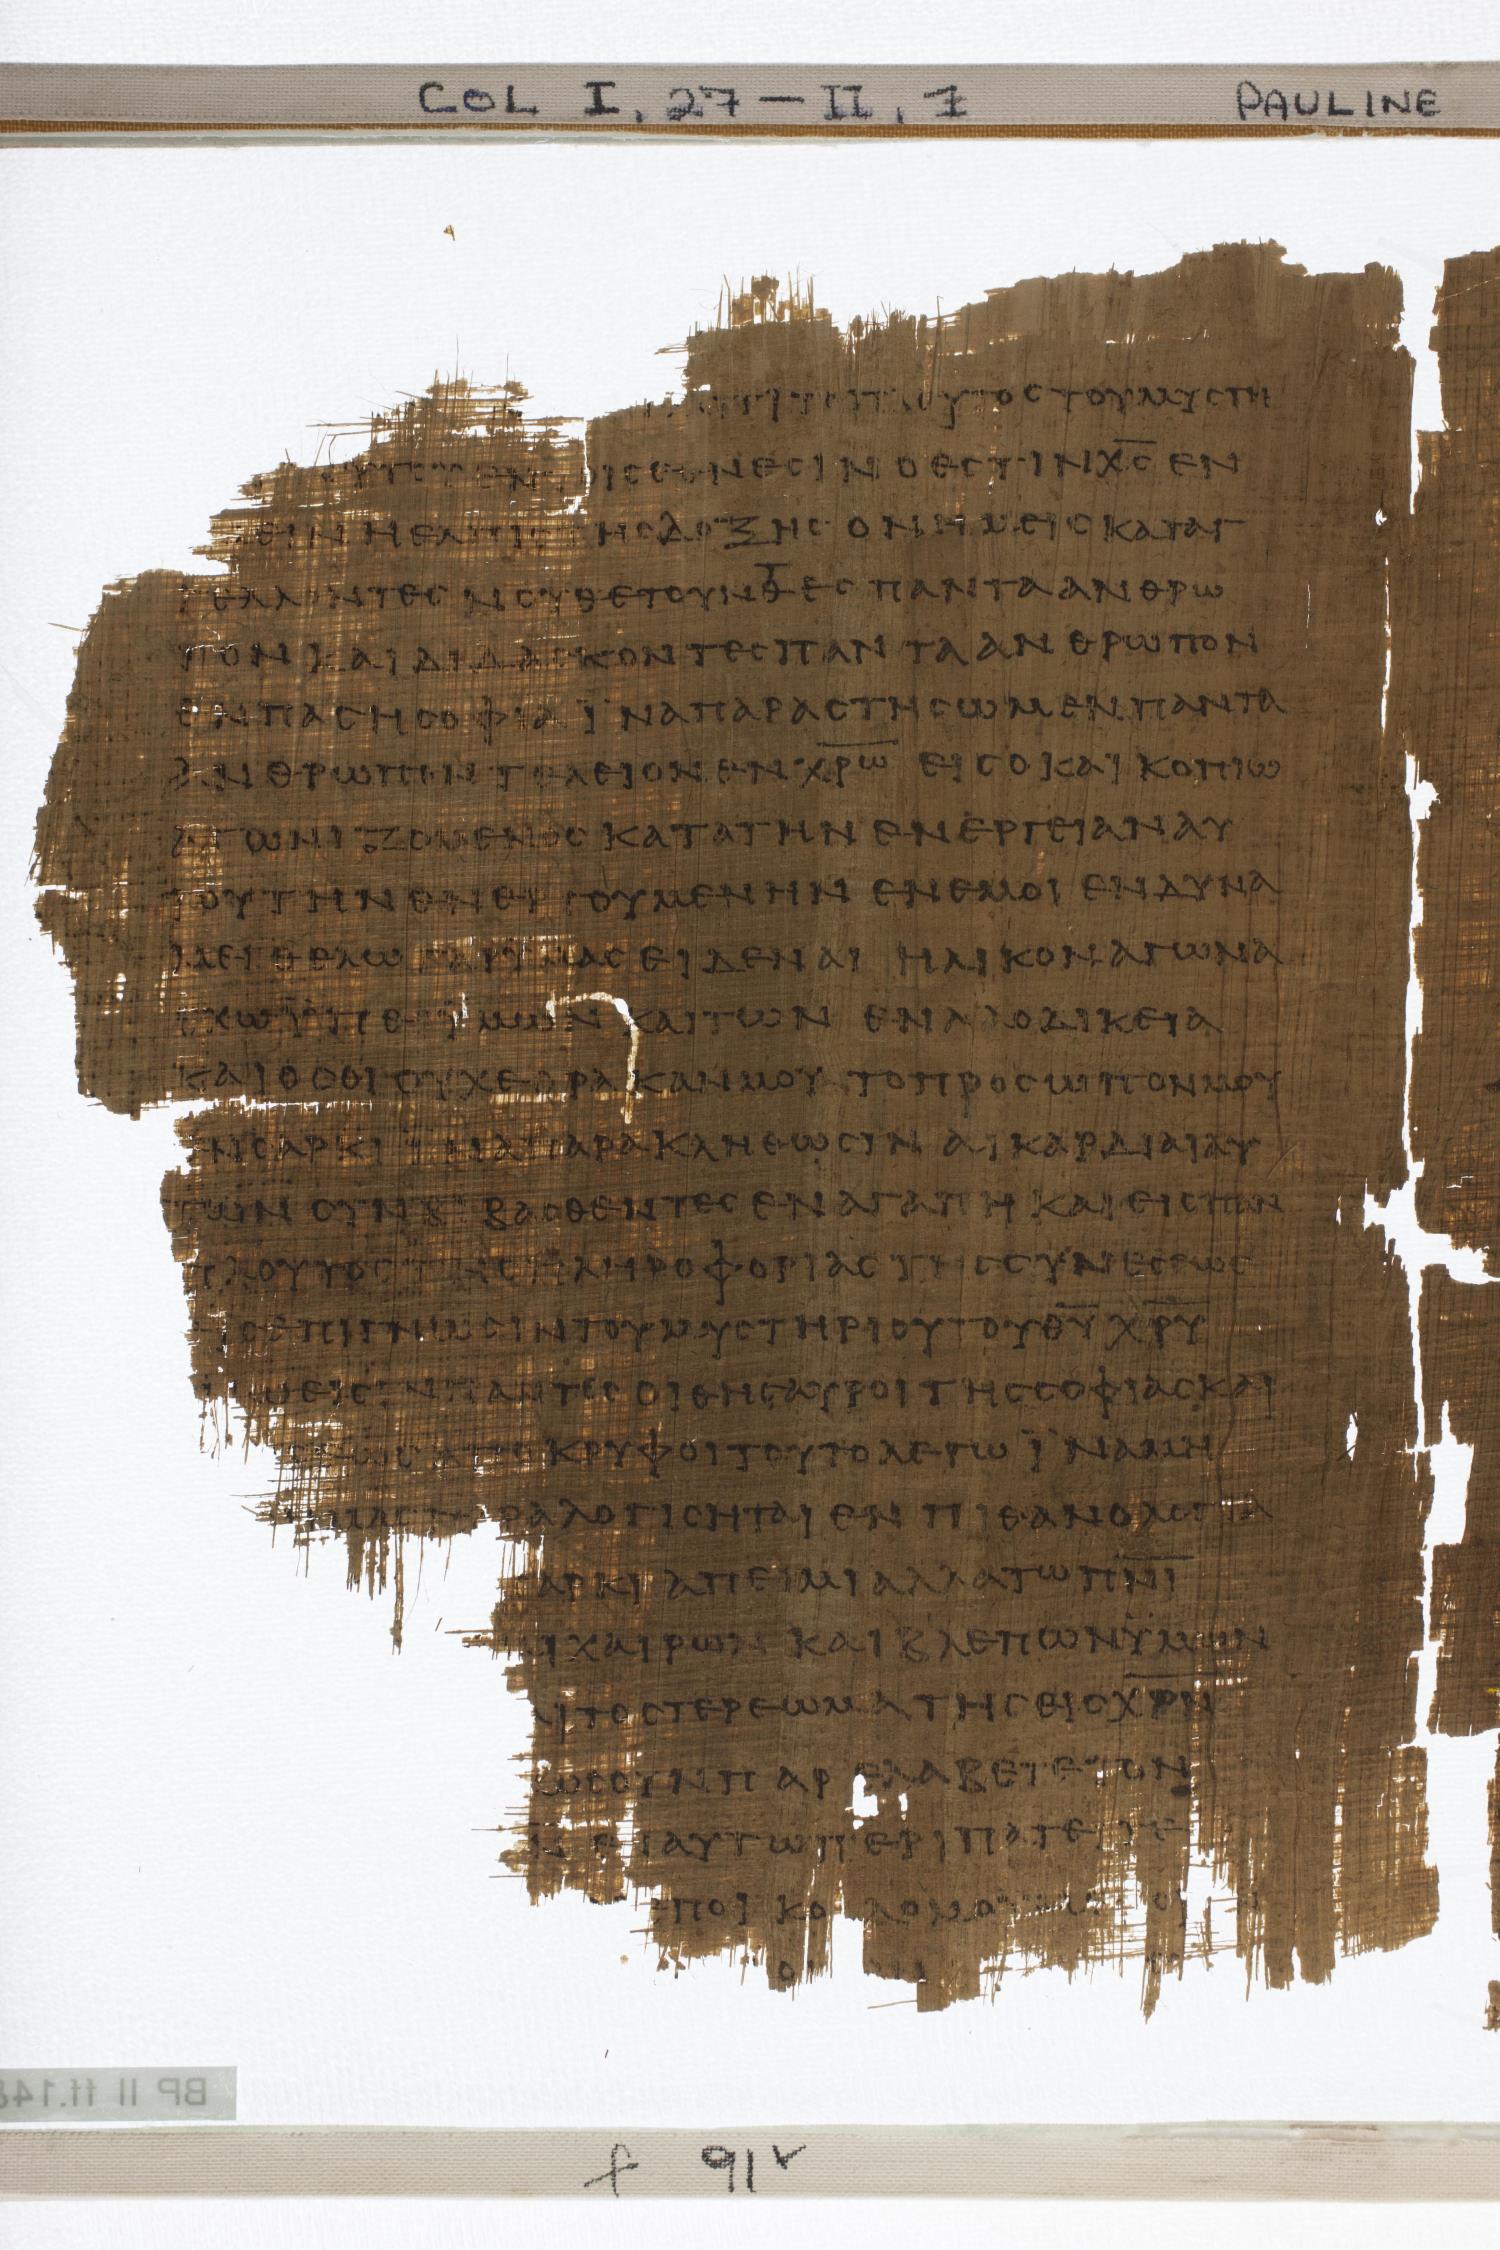 COL I, 27 — II, 7 PAULINE
πλουτος του μυστη
εν οις εθνεσιν ο εστιν χ̅ς̅ εν
ειν η ελπις της δοξης ον ημεις καταγ
γελλοντες νουθετουντες παντα ανθρω
πον και διδασκοντες παντα ανθρωπον
εν παση σοφια ϊνα παραστησωμεν παντα
ανθρωπον τελειον εν χ̅ρ̅ω̅ εις ο και κοπιω
αγωνιζομενος κατα την ενεργειαν αυ
του την ενεργουμενην εν εμοι εν δυνα
μει θελω γαρ υμας ειδεναι ηλικον αγωνα
εχω ϋπερ ϋμων και των εν λαοδικεια
και οσοι ουχ εορακαν μου το προσωπον μου
εν σαρκι ϊνα παρακληθωσιν αι καρδιαι αυ
των συνβιβασθεντες εν αγαπη και εις παν
πλουτος της πληροφοριας της συνεσεως
εις επιγνωσιν του μυστηριου του θ̅υ̅ χ̅ρ̅υ̅
εν ω εισιν παντες οι θησαυροι της σοφιας και
γνωσεως αποκρυφοι τουτο λεγω ϊνα μη
υμας παραλογισηται εν πιθανολογια
σαρκι απειμι αλλα τω π̅ν̅ι̅
χαιρων και βλεπων ϋμων
αι το στερεωμα της εις χ̅ρ̅ν̅
ως ουν παρελαβετε τον
εν αυτω περιπατειτε
εποικοδομου
BP II ff.148
f 91v